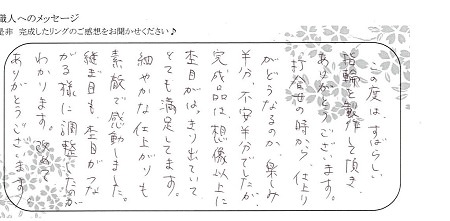 職人へのメッセージ
是非 完成したリングのご感想をお聞かせください♪
この度は、すばらしい
指輪を製作して頂き、
ありがとうございます。
打合せの時から、仕上り
がどうなるのか、楽しみ
半分、不安半分でしたが、
完成品は、想像以上に
杢目がはっきり出ていて
とても満足してます。
細やかな仕上がりも
素敵で感動しました。
継ぎ目も、杢目がつな
がる様に調整したのが
わかります。改めて
ありがとうございます。